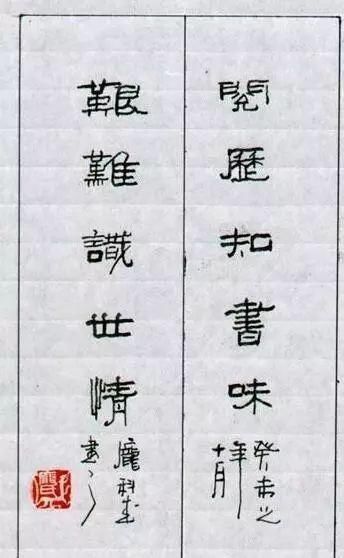 閱歷知書味
癸未之
年
十月
艱難識世情
龐
書